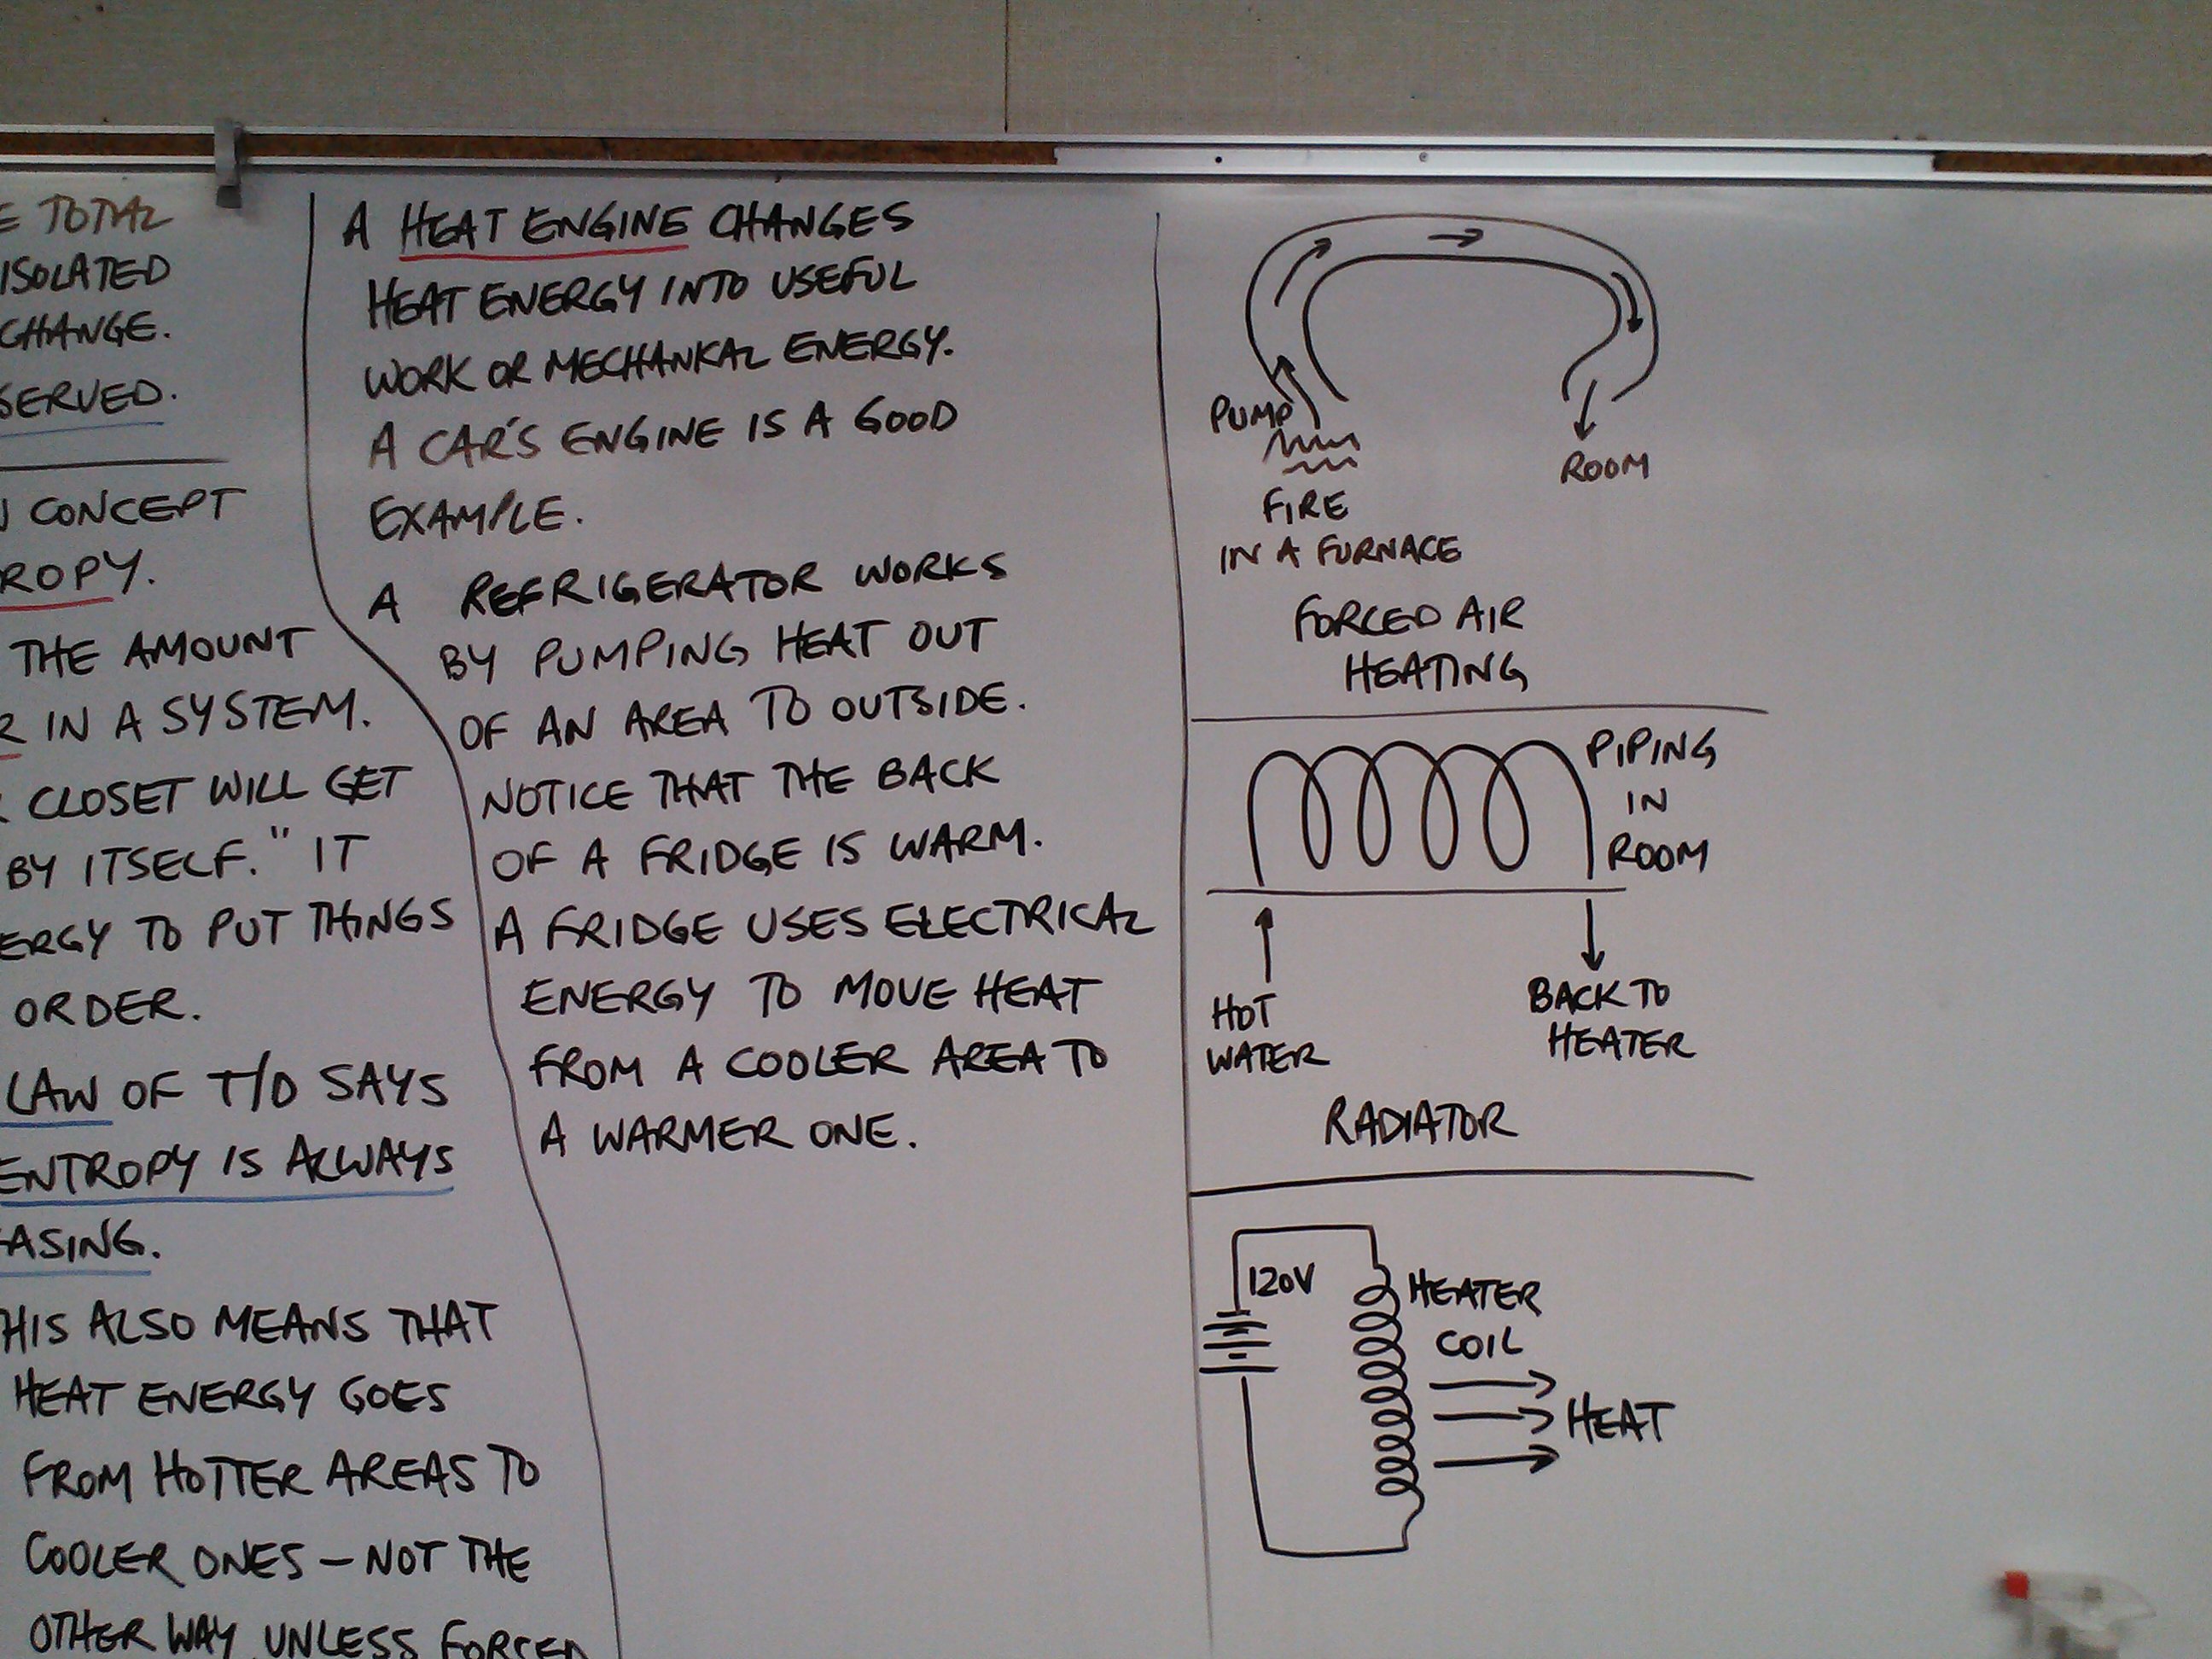 E TOTAL
ISOLATED
CHANGE.
SERVED.
CONCEPT
ROPY.
THE AMOUNT
R IN A SYSTEM.
CLOSET WILL GET
BY ITSELF." IT
ERGY TO PUT THINGS
ORDER.
LAW OF T/D SAYS
ENTROPY IS ALWAYS
EASING.
HIS ALSO MEANS THAT
HEAT ENERGY GOES
FROM HOTTER AREAS TO
COOLER ONES – NOT THE
OTHER WAY UNLESS FORCED
A HEAT ENGINE CHANGES
HEAT ENERGY INTO USEFUL
WORK OR MECHANICAL ENERGY.
A CAR'S ENGINE IS A GOOD
EXAMPLE.
A REFRIGERATOR WORKS
BY PUMPING HEAT OUT
OF AN AREA TO OUTSIDE.
NOTICE THAT THE BACK
OF A FRIDGE IS WARM.
A FRIDGE USES ELECTRICAL
ENERGY TO MOVE HEAT
FROM A COOLER AREA TO
A WARMER ONE.
PUMP
ROOM
FIRE
IN A FURNACE
FORCED AIR
HEATING
PIPING
IN
ROOM
HOT
WATER
BACK TO
HEATER
RADIATOR
120V
HEATER
COIL
HEAT